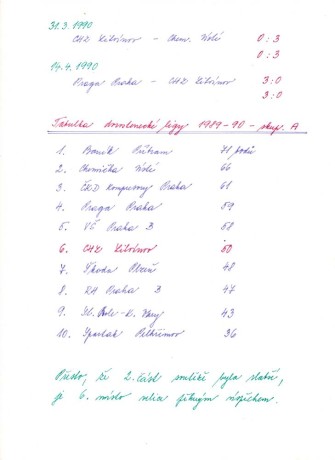 31.3.1990
CHZ Litvínov – Chem. Wolé 0:3
0:3
14.4.1990
Praga Praha – CHZ Litvínov 3:0
3:0
Tabulka dorostenecké ligy 1989-90 – skup. A
1. Baník Příbram 71 bodů
2. Chemička Wolé 66
3. ČKD Kompresory Praha 61
4. Praga Praha 59
5. VŠ Praha B 58
6. CHZ Litvínov 50
7. Škoda Plzeň 48
8. RH Praha B 47
9. St. Role - K. Vary 43
10. Spartak Pelhřimov 36
Přesto, že 2. část soutěže byla slabší,
je 6. místo velice pěkným úspěchem.